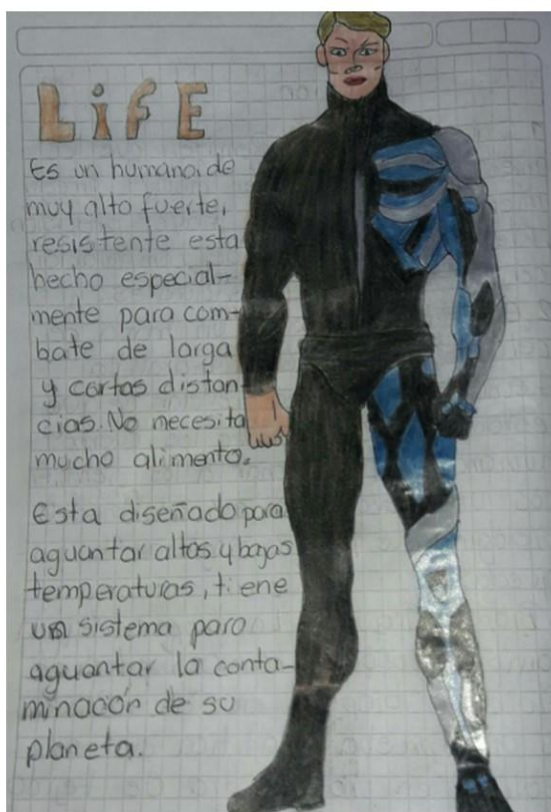 LiFE
Es un humanoide
muy alto fuerte,
resistente esta
hecho especial-
mente para com-
bate de larga
y cortas distan-
cias. No necesita
mucho alimento.
Esta diseñado para
aguantar altas y bajas
temperaturas, tiene
un sistema para
aguantar la conta-
minacón de su
planeta.